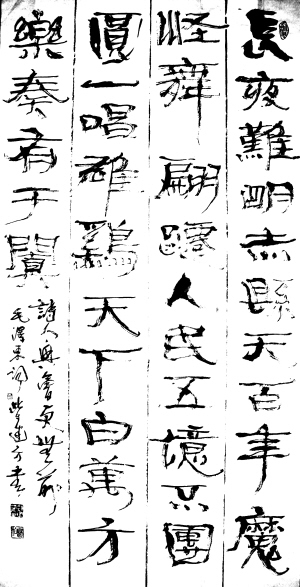 長夜難明赤縣天百年魔
怪舞翩躚人民五億不團
圓一唱雄鷄天下白萬方
樂奏有于闐
詩人興會更無前
毛澤東詞 方書